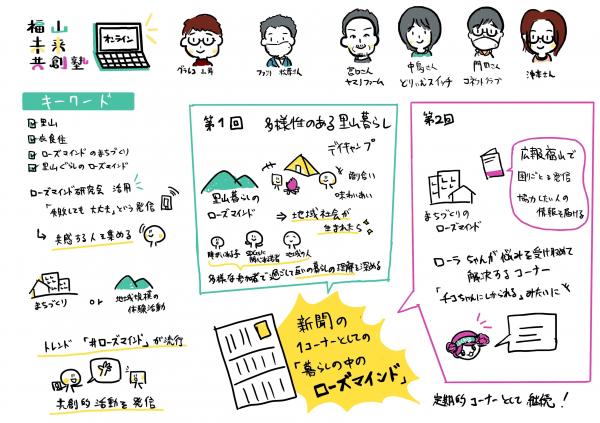 福山
未来
共創塾
オンライン
グラレコ
ファシ
宮口さん
ヤマノファーム
中島さん
とりぃむスイッチ
門田さん
コネクトラブ
津本さん
キーワード
里山
衣食住
ローズマインドのまちづくり
里山ぐらしのローズマインド
ローズマインド研究会 活用
「失敗しても大丈夫」という発信
共感する人を集める
まちづくり
or
地域規模の
体験活動
トレンド「#ローズマインド」が流行
共創的活動を発信
第1回
多様性のある里山暮らし
デイキャンプ
里山暮らしの
ローズマインド
助合い
味わいあい
→ 地域社会が
生まれたら
障がい者・子
SDGsに
関心ある若者
地域の人
多様な参加者で過ごして互いの暮らしの理解を深める
新聞の
1コーナーとしての
「暮らしの中の
ローズマインド」
第2回
広報福山で
困りごとを発信
協力したい人の
情報を届ける
まちづくりの
ローズマインド
ローラちゃんが悩みを受け止めて
解決するコーナー
「チコちゃんにしかられる」みたいに
定期的コーナーとして継続！